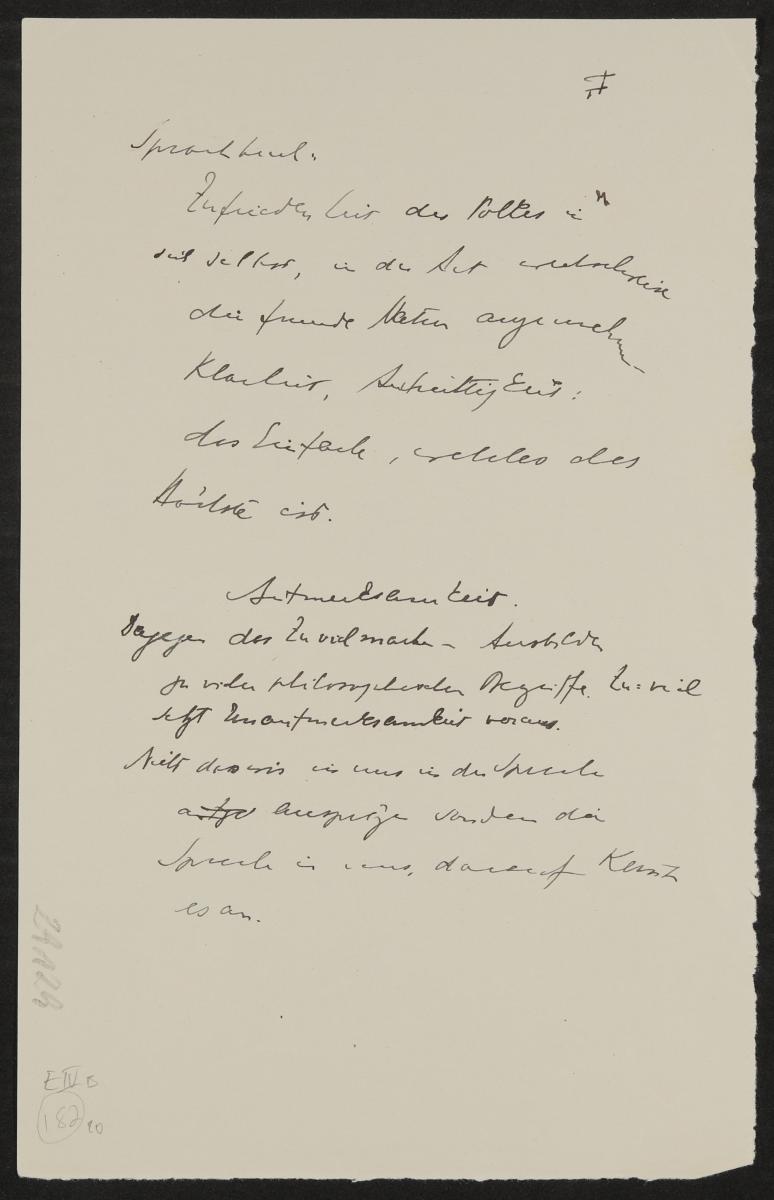 II
Sprachbuch.
Zufriedenheit des Volkes in
sich selbst, in der Art
die fremde Natur
Klarheit,
das Einfache, welches das
Höchste ist.
Aufmerksamkeit.
Dagegen das Zuvielmachen – Ausbilden
zu vieler philosophischer Begriffe. Zu=viel
setzt Unaufmerksamkeit voraus.
Nicht dass wir in uns in der Sprache
ausprägen sondern die
Sprache in uns, darauf kommt
es an.
24124
E IV B
182